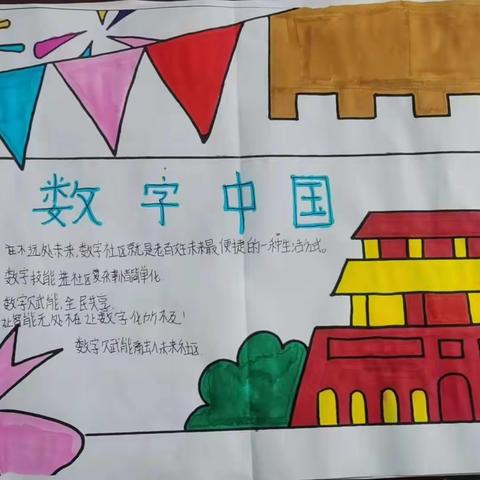 数字中国
在不远处未来,数字社区就是老百姓未来最便捷的一种生活方式。
数字技能 让社区复杂事情简单化
数字赋能,全民共享
让智能无处不在 让数字化所不及!
数字赋能 走进未来社区